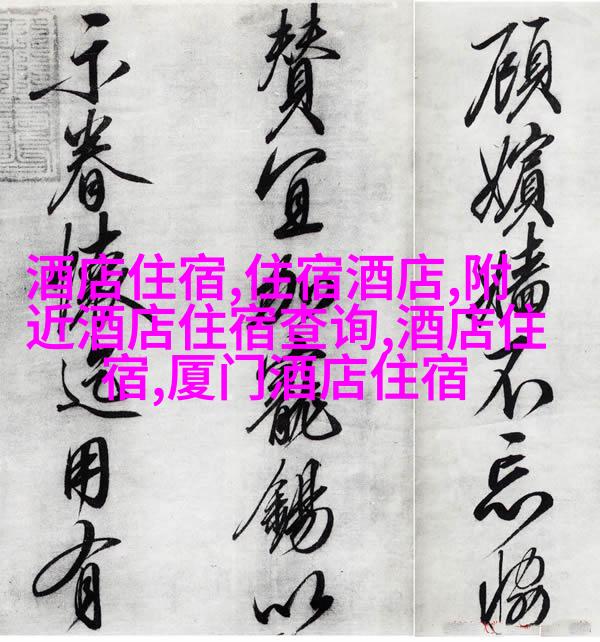 顧嬪嬙不忘協
贊宜加寵錫以
示眷懷迄用有
酒店住宿,住宿酒店,附
近酒店住宿查询,酒店住
宿,厦门酒店住宿